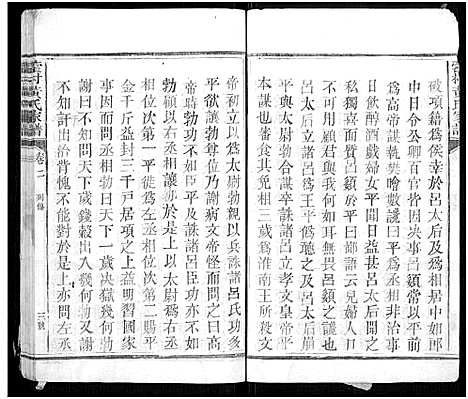 破項籍為侯幸於呂太后及居中如郎
中令公卿百官皆因決事呂嬃平前
為高帝執樊噲數讒曰平為丞相不治事
日飲醇酒戲婦女平聞日益甚呂太后聞之
私獨喜面質呂嬃於平前曰鄙語云兒婦人口
不可用顧君與我何如耳無畏呂嬃之譖也
呂太后立諸呂為王平偽聽之及呂太后崩
平與太尉勃合謀卒誅諸呂立孝文皇帝平
本謀也審食其免相三歲為淮南王所殺文
黃氏家譜 卷二
帝初立以為太尉勃親以兵誅諸呂功多
平欲讓勃尊位乃謝病文帝怪而問之曰高
帝時勃功不如平及誅諸呂臣功亦不如
勃願以右丞相讓勃於是上以太尉勃為右丞
相位次第一平徙為左丞相位次第二賜平
金千斤益封三千戶居頃之上益明習國家
事因而問勃曰天下一歲決獄幾何勃
謝曰不知問天下歲錢穀出入幾何勃又謝
不知出治背愧不能對於是上亦問左丞